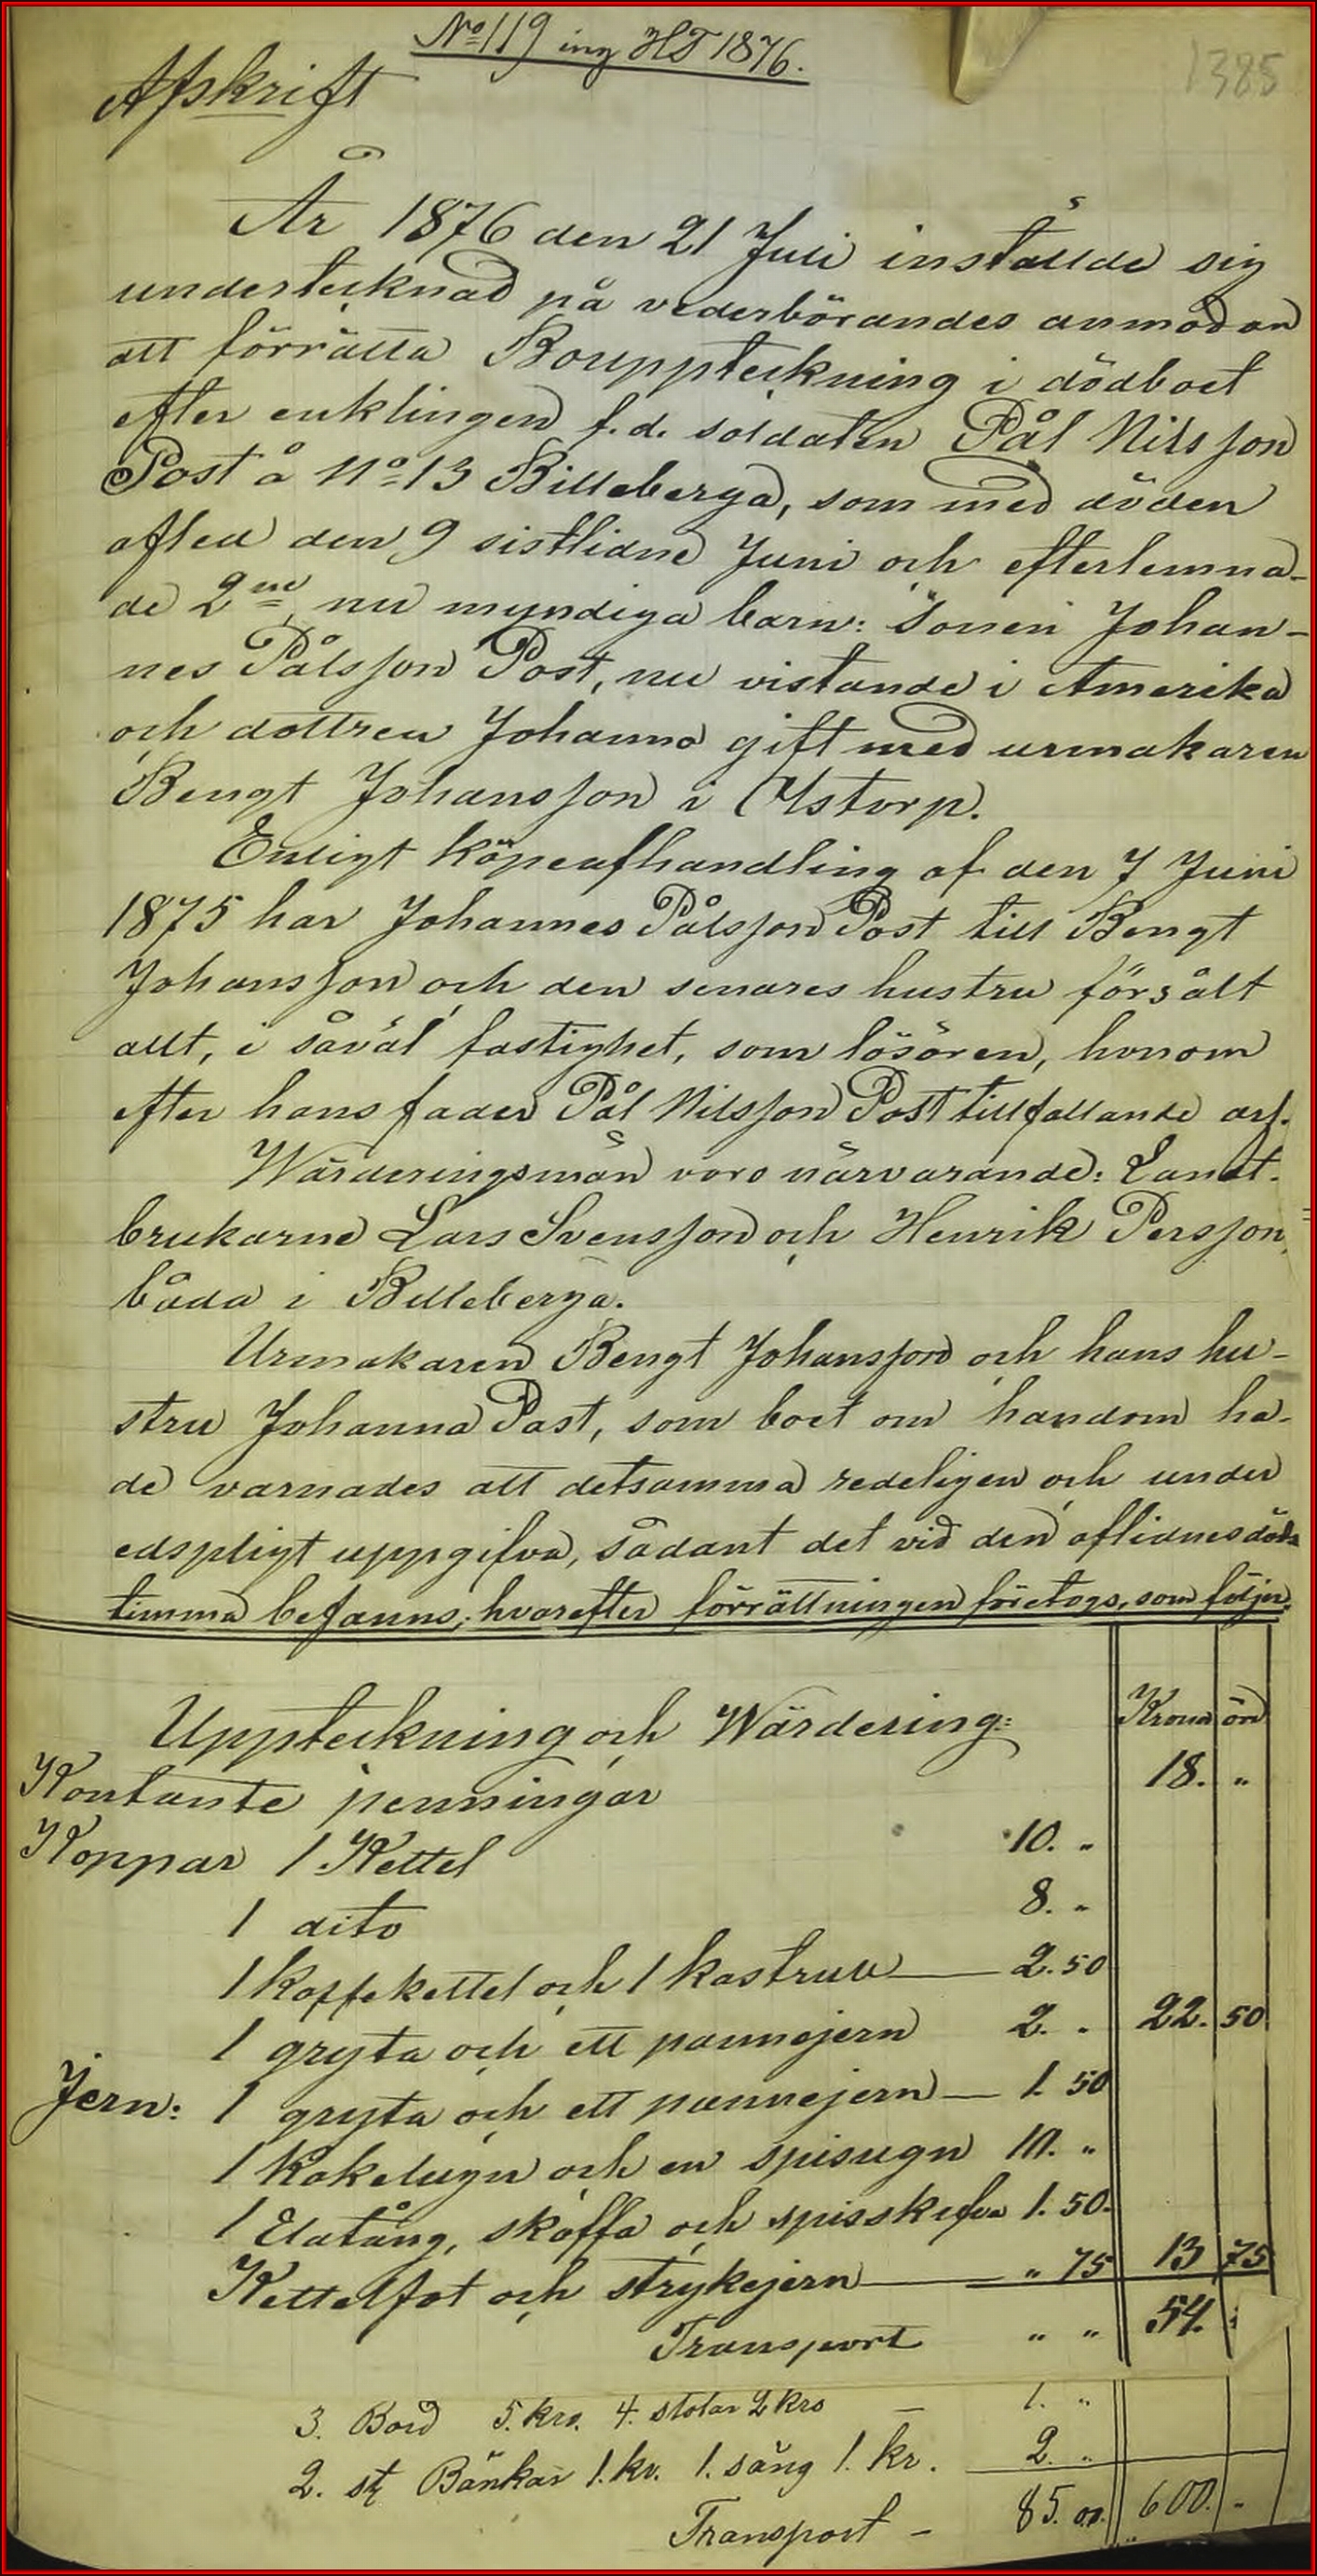 No 119 ing HT 1876.
1385
Afskrift
År 1876 den 21 Juli inställde sig
undertecknad på vederbörandes anmodan
att förrätta Bouppteckning i dödboet
efter enklingen f.d. soldaten Pål Nilsson
Post å No 13 Billeberga, som med döden
afled den 9 sistlidne Juni och efterlemna-
de 2ne nu myndiga barn: sonen Johan-
nes Pålsson Post, nu vistande i Amerika
och dottren Johanna gift med urmakaren
Bengt Johansson i Ystorp.
Enligt köpeafhandling af den 7 Juni
1875 har Johannes Pålsson Post till Bengt
Johansson och den senares hustru försålt
allt, i såväl fastighet, som lösören, honom
efter hans fader Pål Nilsson Post tillfallande arf.
Wärderingsmän voro närvarande: Landt-
brukarne Lars Svensson och Henrik Persson,
båda i Billeberga.
Urmakaren Bengt Johansson och hans hu-
stru Johanna Post, som boet om handom ha-
de varnades att detsamma redeligen och under
edspligt uppgifva, sådant det vid den aflidnes döds
timma befanns; hvarefter förrättningen företogs, som följer:
Uppteckning och Wärdering: Kronor öre
Kontante penningar 18. "
Koppar 1 Kettel 10. "
1 dito 8. "
1 Kaffekettel och 1 kastrull 2.50
1 gryta och ett pannejern 2. " 22. 50
Jern: 1 gryta och ett pannejern 1. 50
1 Kakelugn och en spisugn 10. "
1 Eldtång, skoffa och spisskifva 1. 50.
Kettelfot och strykejern " 75 13 75
Transport " " 54.
3. Bord 5. kro. 4. stolar 2 kro — 1. "
2. st Bänkar 1. kr. 1. säng 1. kr. 2. "
Transport — 85. 00. 600. "